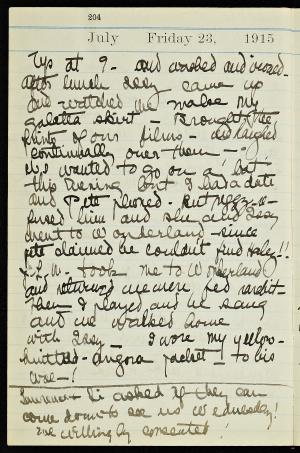 204
July Friday 23, 1915
Up at 9 - and washed and ironed -
after lunch Issy came up
and watched me make my
galatea skirt - Brought the
prints of our films - and laughed
continually over them -
We wanted to go on a bat
this evening but I had a date
and Pete phoned. But Peggy re-
fused him and she and Issy
went to Wonderland - since
Pete claimed he couldn't find Haley!!
L.L.W. took me to Wonderland
and returned
then I played and he sang
and we walked home
with Issy - I wore my yellow
knitted - angora jacket - to his
woe - !
Lawrence Li asked if they can
come down to see us Wednesday!
we willingly consented!